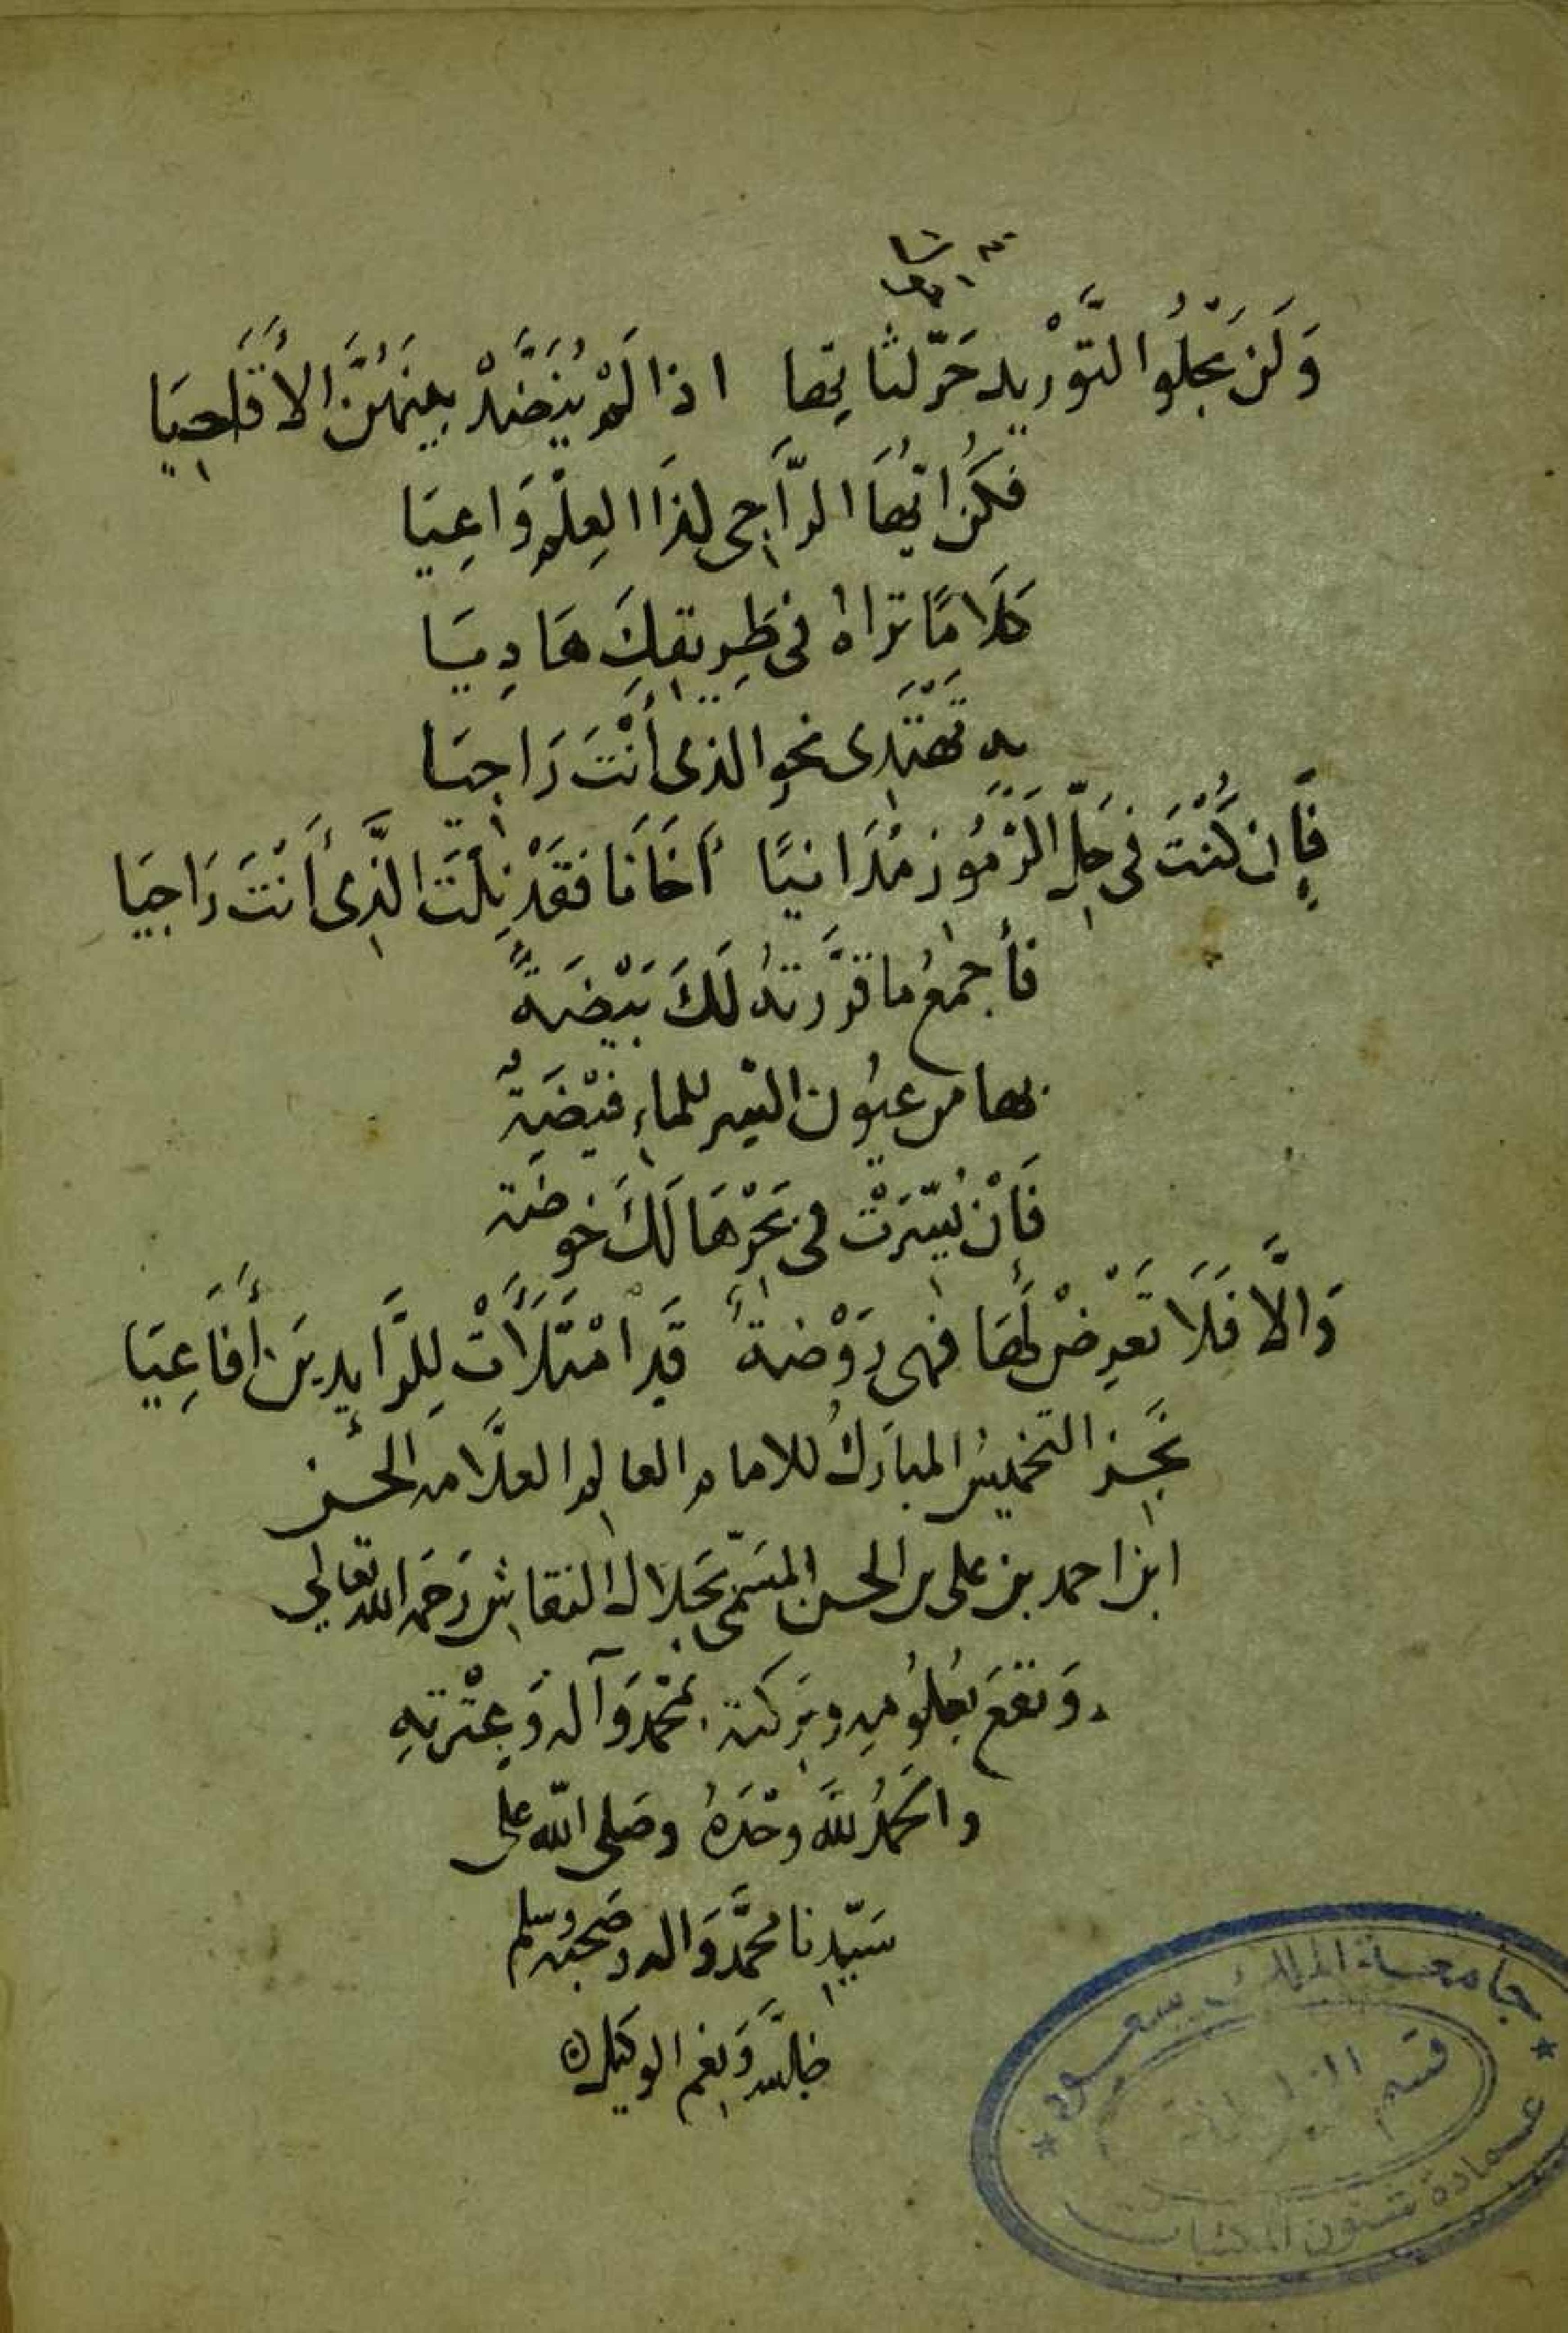 وَلَن تَجْلُوا التَّوْرِيد حَرّ لثاتها اذا لَمْ يُنَضَّدْ بينَهُنَّ الأَقَاحِيَا
فَكُن ايُّهَا الرَّاجى لِذَا العِلْمِ وَاعِيَا
كَلَامًا تراهُ فى طَرِيقِكَ هَادِيَا
به تَهْتَدِى نحو الذى أَنْتَ رَاجِيَا
فَإِن كُنْتَ فى حَلِّ الرُّمُوزِ مُدَانِيًا أَخَانَا فَقَدْ نِلْتَ الَّذِى أَنْتَ رَاجِيَا
فأجمعُ ما قرَّرتهُ لَكَ بَيْضَةً
بها من عيُون السر للماءِ فَيْضَةٌ
فَإِنْ يُسِّرَتْ فى بَحْرِهَا لَكَ خوضة
وَالَّا فَلَا تَعْرِضْ لَهَا فهى رَوْضةٌ قَدِ امْتَلَأَتْ لِلرَّايدِينَ أَفَاعِيَا
نَجَز التخميسُ المبارَكُ للامام العالم العلَّامه الحسن
ابن احمد بن على بن الحسن المسَمّى بجَلال النقاش رَحمَه الله تعالى
وَنفعَ بعُلُومِه وبَركته بمُحَمَّد وَآله وَعِتْرتهِ
والحَمْدُ للَّه وحْدَهُ وصَلى اللّه على
سَيِّدِنا محَمَّد وَاله وصَحبه وسلم
وَنِعْم الوكيل
جامعة الملك سعود
قسم
عمادة شئون المكتبات